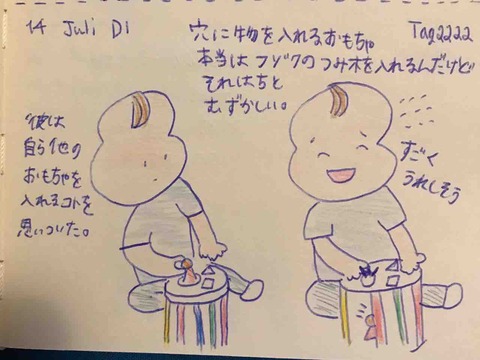 14 Juli Di
穴に物を入れるおもちゃ
Tag2222
本当はフゾクのつみ木を入れるんだけど
それはちと
むずかしい。
彼は
自ら他の
おもちゃを
入れるコトを
思いついた。
すごく
うれしそう